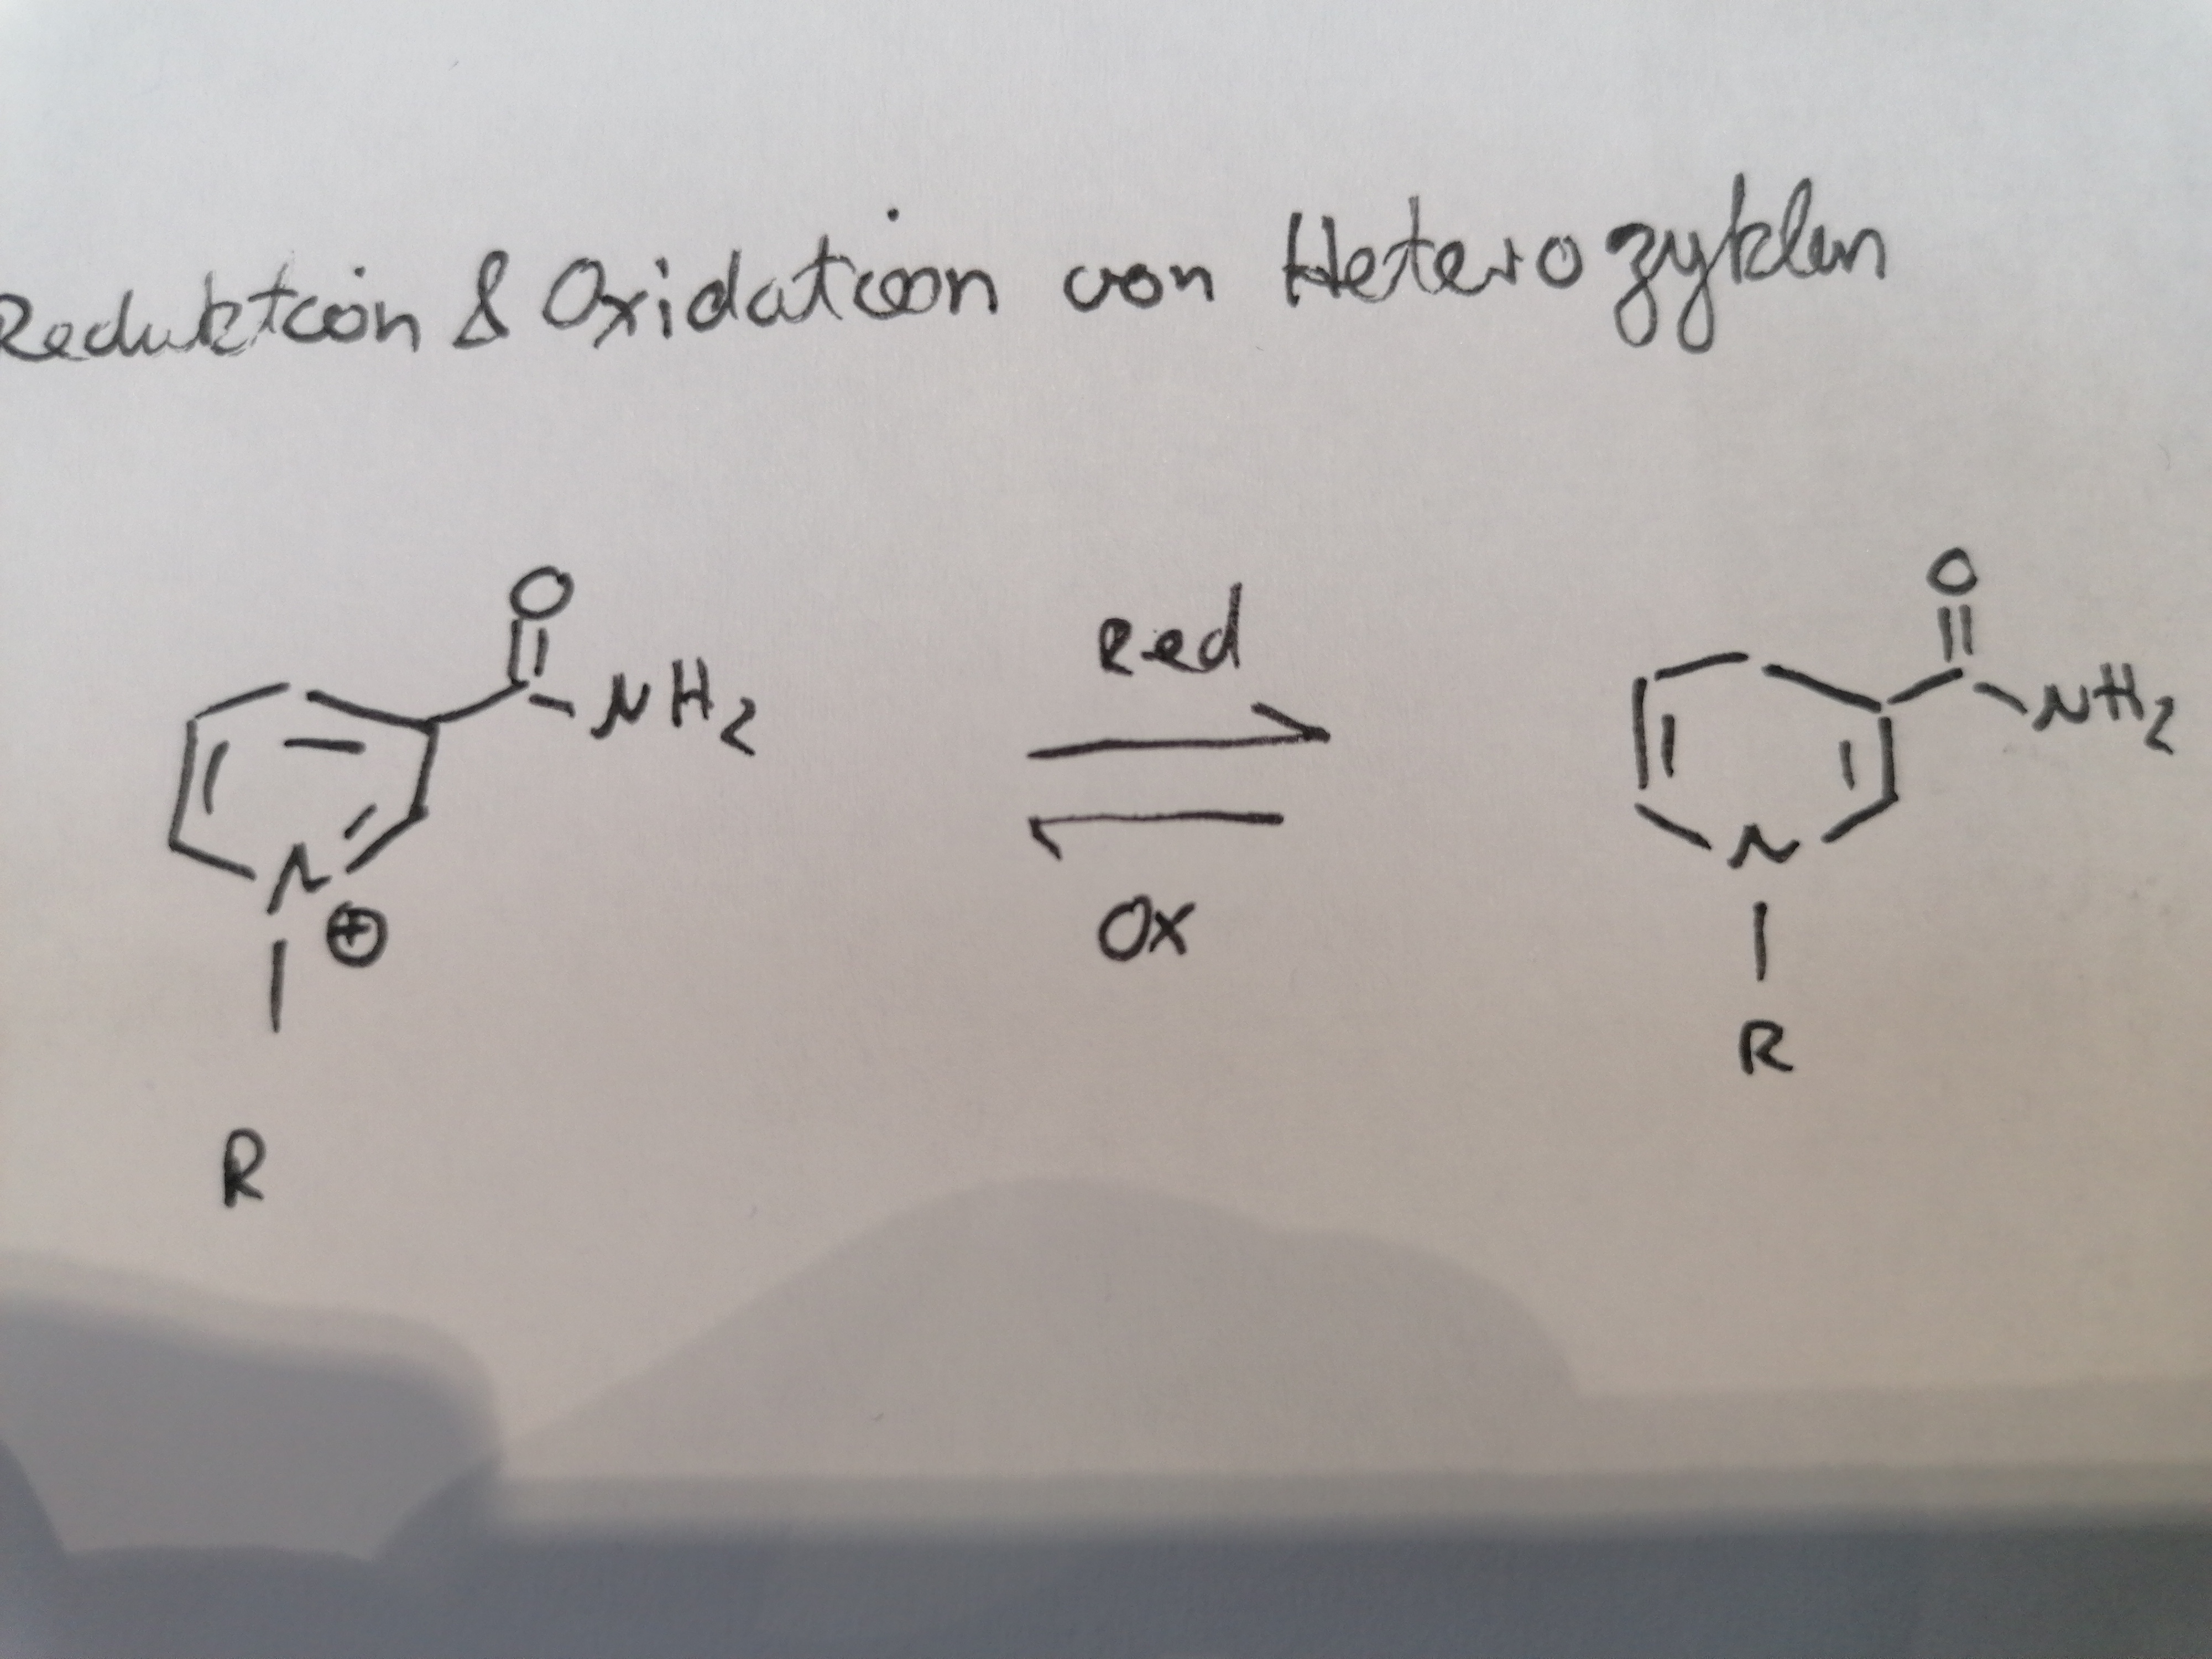 Reduktion & Oxidation von Heterozyklen
O
NH2
N
⊕
R
Red
Ox
O
NH2
N
R